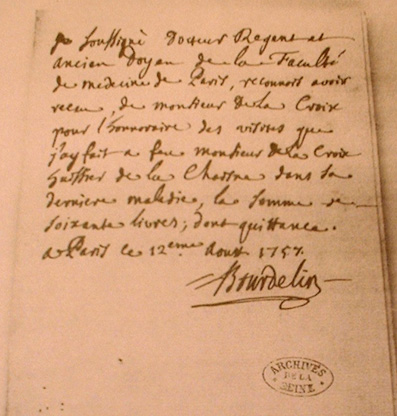 Je Soussigné Docteur Regent et
ancien Doyen de la Faculté
de medecine de Paris, reconnois avoir
receu, de monsieur de la Croix
pour l'honnoraire des visites que
j'ay fait a feu monsieur de la Croix
huissier de la Chastre dans sa
derniere maladie, la somme de
soixante livres; dont quittance.
a Paris ce 12eme Aoust 1757.
Bourdelin
ARCHIVES
DE LA
SEINE